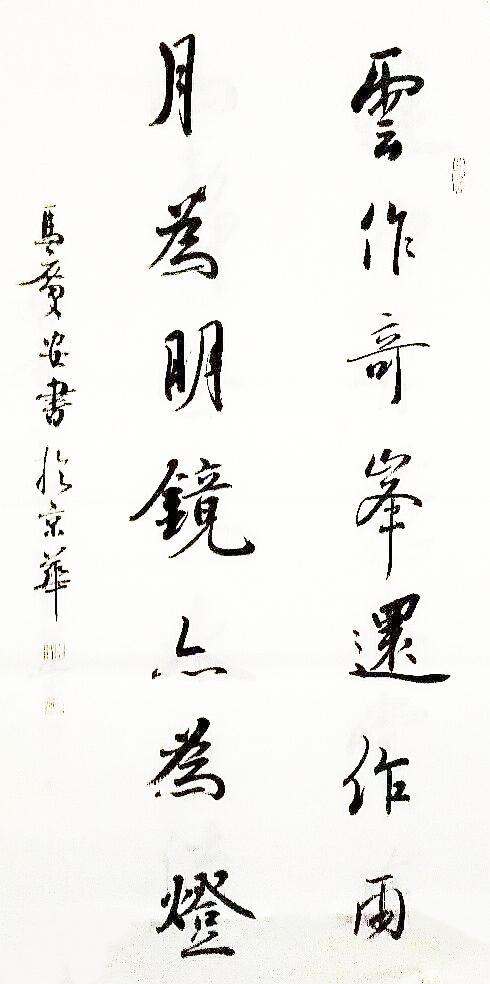 雲作奇峯還作雨
月為明鏡亦為燈
馬廣安書於京華